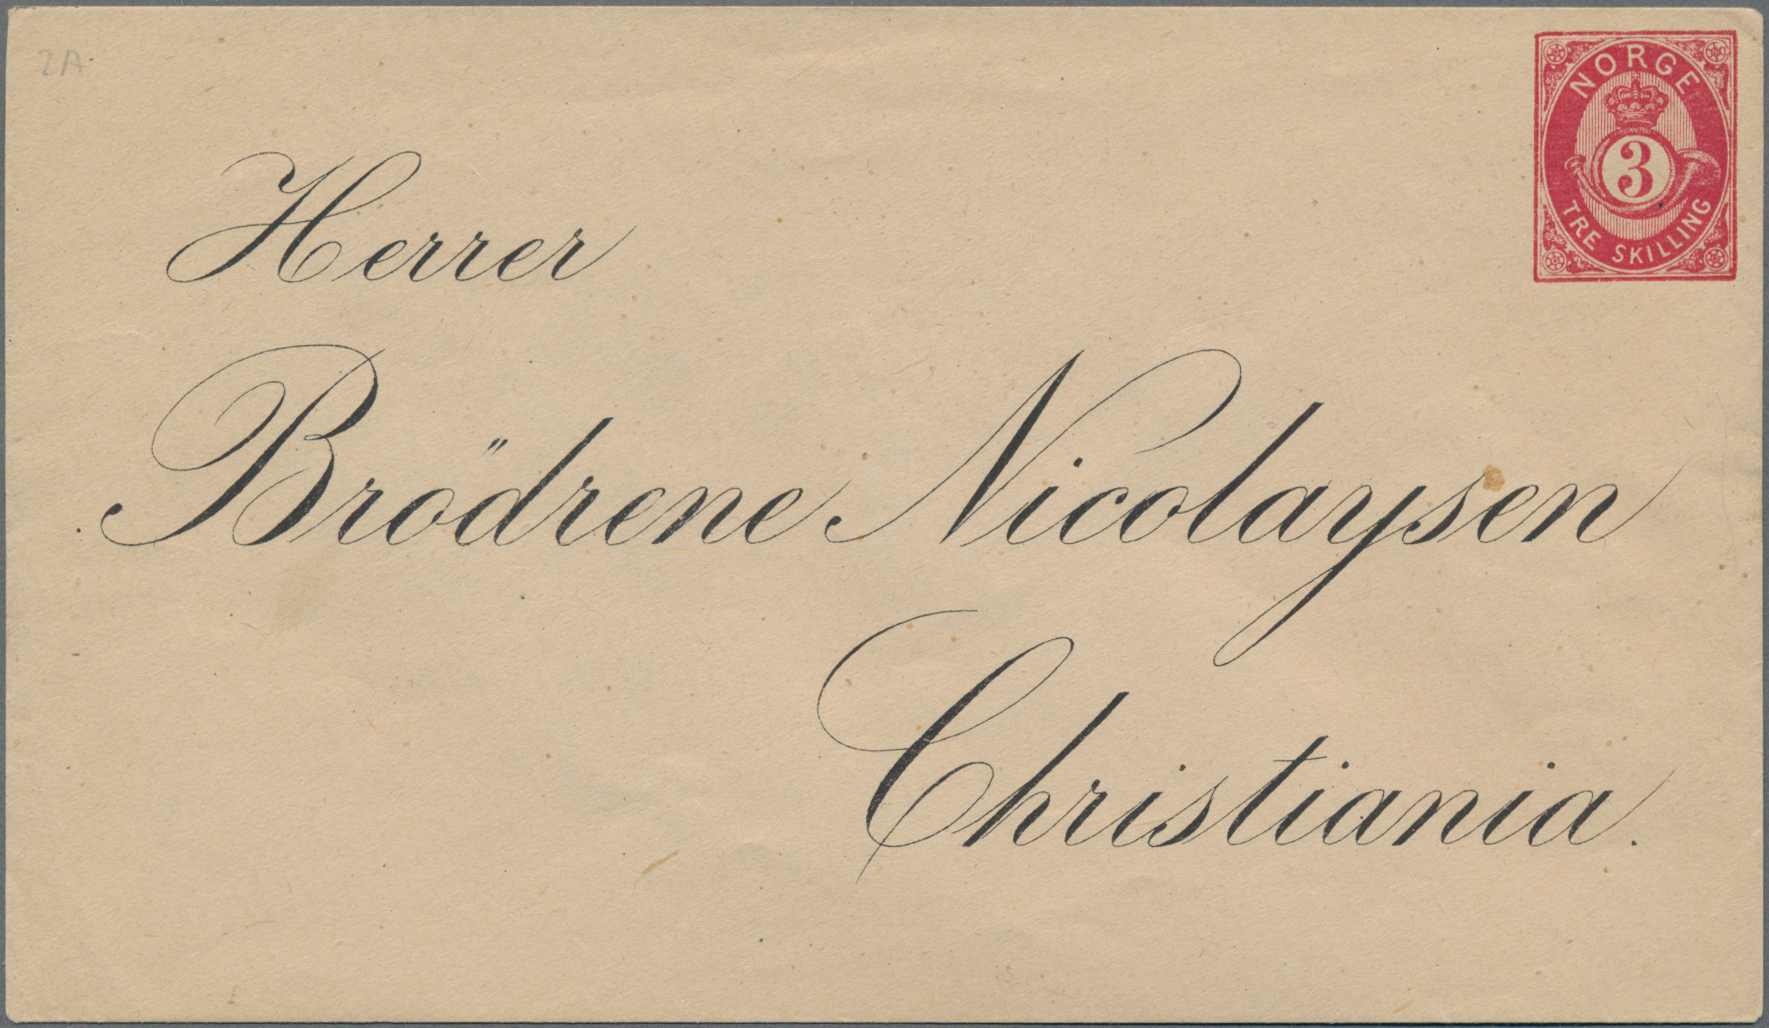 2A
NORGE
3
TRE SKILLING
Herrer
Brödrene Nicolaysen
Christiania.